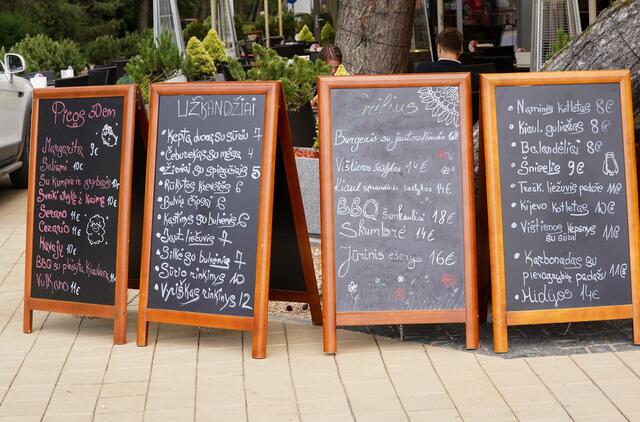 Picos 30cm
Margarita 9€
Saliami 10€
Su kumpiu ir grybais 10€
Serano 11€
Cezario 11€
Havajų 11€
BBQ su plėšyta kiauliena
Vulkano 11€
UŽKANDŽIAI
• Kepta duona su sūriu 7
• Čeburekas su mėsa 4
• Žirniai su spirgučiais 5
• Krevetės 6
• Bulvių čipsai 6
• Kastinys su bulvėmis 6
• Jaut. liežuvis 7
• Silkė su bulvėmis 7
• Sūrio rinkinys 10
• Vyriškas rinkinys 12
Grilius
Burgeris su jautiena
Vištienos šašlykas 14€
Kiaul. sprandinės šašlykas 14€
BBQ šonkauliai 18€
Skumbrė 14€
Jūrinis ešerys 16€
• Naminis kotletas 8€
• Kiaul. guliašas 8€
• Balandėliai 8€
• Šnicelis 9€
• Trošk. liežuvis padaže 11€
• Kijevo kotletas 10€
• Vištienos kepsnys
su sūriu 10€
• Karbonadas su
pievagrybių padažu 11€
• Midijos 14€